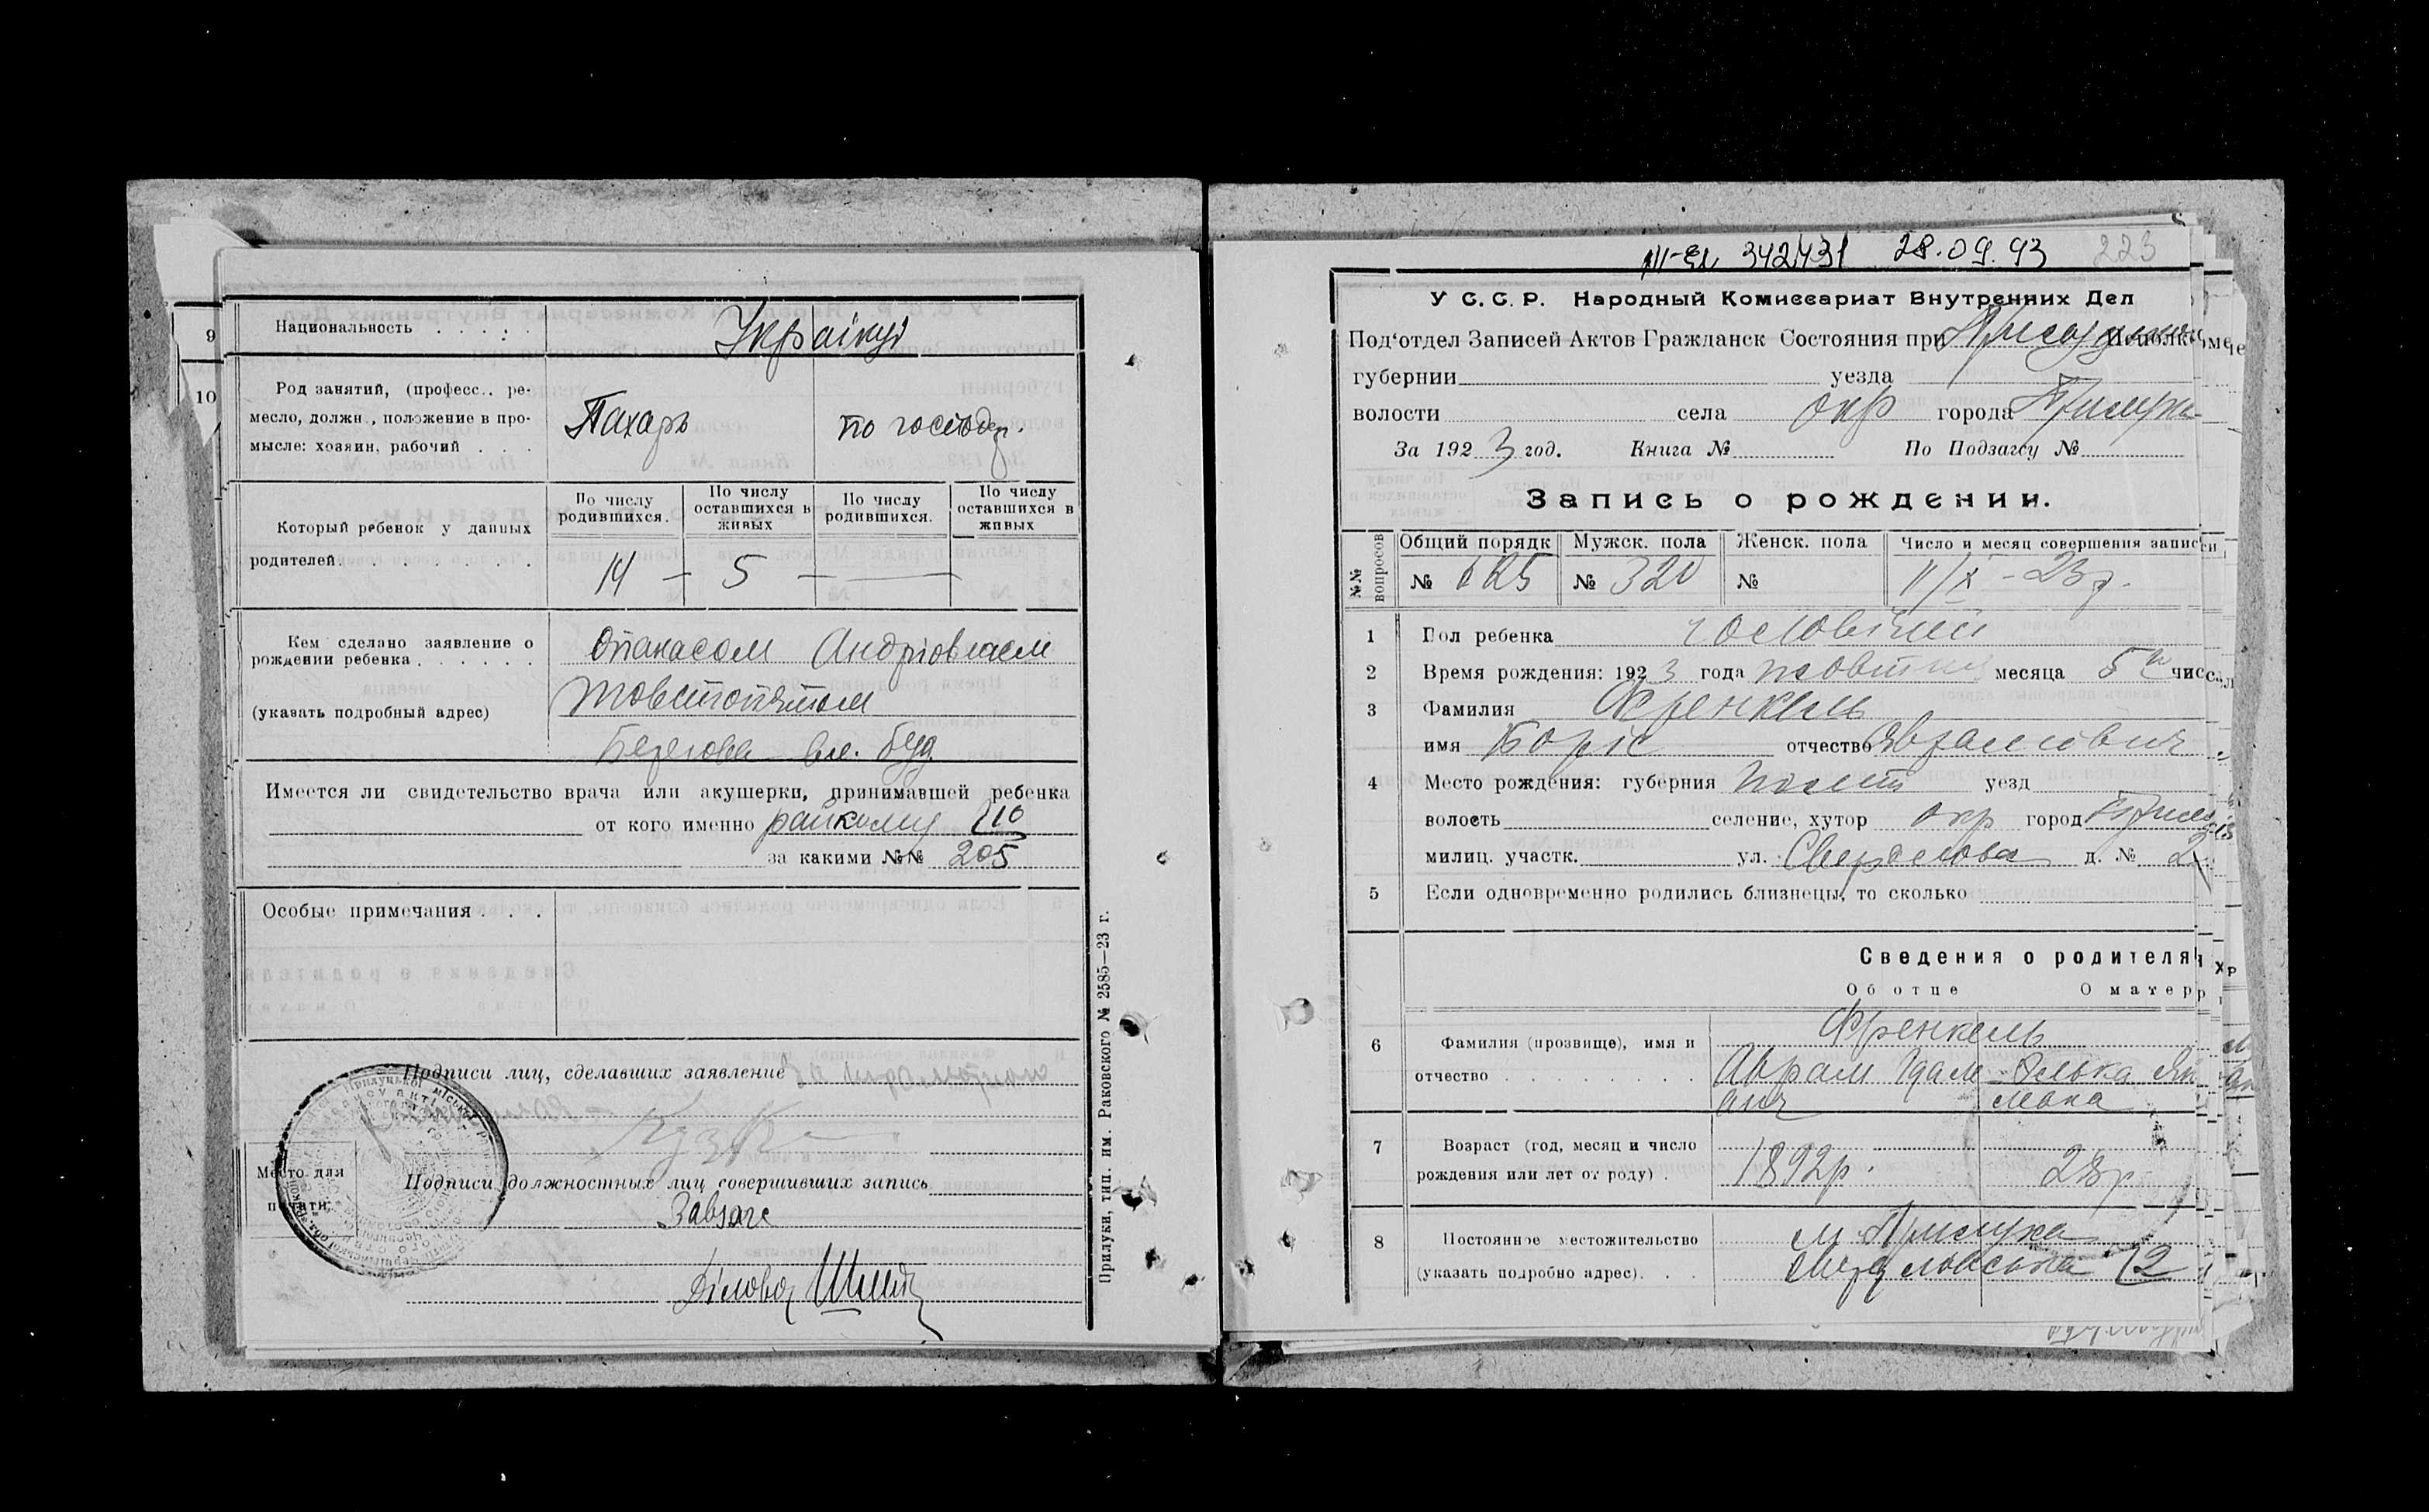 9
10
Национальность . . . . .
Українці
Род занятий, (професс., ре-
месло, должн., положение в про-
мысле: хозяин, рабочий . . .
Пахарь
по господ.
Который ребенок у данных
родителей. . . . . . .
По числу родившихся.
По числу оставшихся в живых
По числу родившихся.
По числу оставшихся в живых
14 — 5 —
Кем сделано заявление о
рождении ребенка . . . . . .
(указать подробный адрес)
Опанасом Андріовичем
Товстопятом
Берегова вл. буд.
Имеется ли свидетельство врача или акушерки, принимавшей ребенка
от кого именно райкому
за какими №№ 205
Особые примечания . . .
Подписи лиц, сделавших заявление
Место для
печати.
Подписи должностных лиц совершивших запись
Завзагс
Діловод
Прилуки, тип. им. Раковского № 2585—23 г.
342431 28.09.93 223
У С. С. Р. Народный Комиссариат Внутренних Дел
Под'отдел Записей Актов Гражданск Состояния при
губернии уезда
волости села окр города Прилука
За 1923 год. Книга № По Подзагсу №
Запись о рождении.
№№ вопросов
Общий порядк
№ 625
Мужск. пола
№ 320
Женск. пола
№
Число и месяц совершения записи
11/X - 23 р.
1 Пол ребенка чоловічий
2 Время рождения: 1923 года жовтня месяца 5 числ
3 Фамилия Френкель
имя Боріс отчество Аврамович
4 Место рождения: губерния Полт уезд
волость селение, хутор окр город Прилука
милиц. участк. ул. Свердлова д. № 2
5 Если одновременно родились близнецы, то сколько
Сведения о родителях
Об отце О матер
6 Фамилия (прозвище), имя и
отчество . . . . . . . .
Френкель
Аврам
7 Возраст (год, месяц и число
рождения или лет от роду) .
1892р.
28р
8 Постоянное местожительство
(указать подробно адрес). . .
м Прилука
Свердловська 2